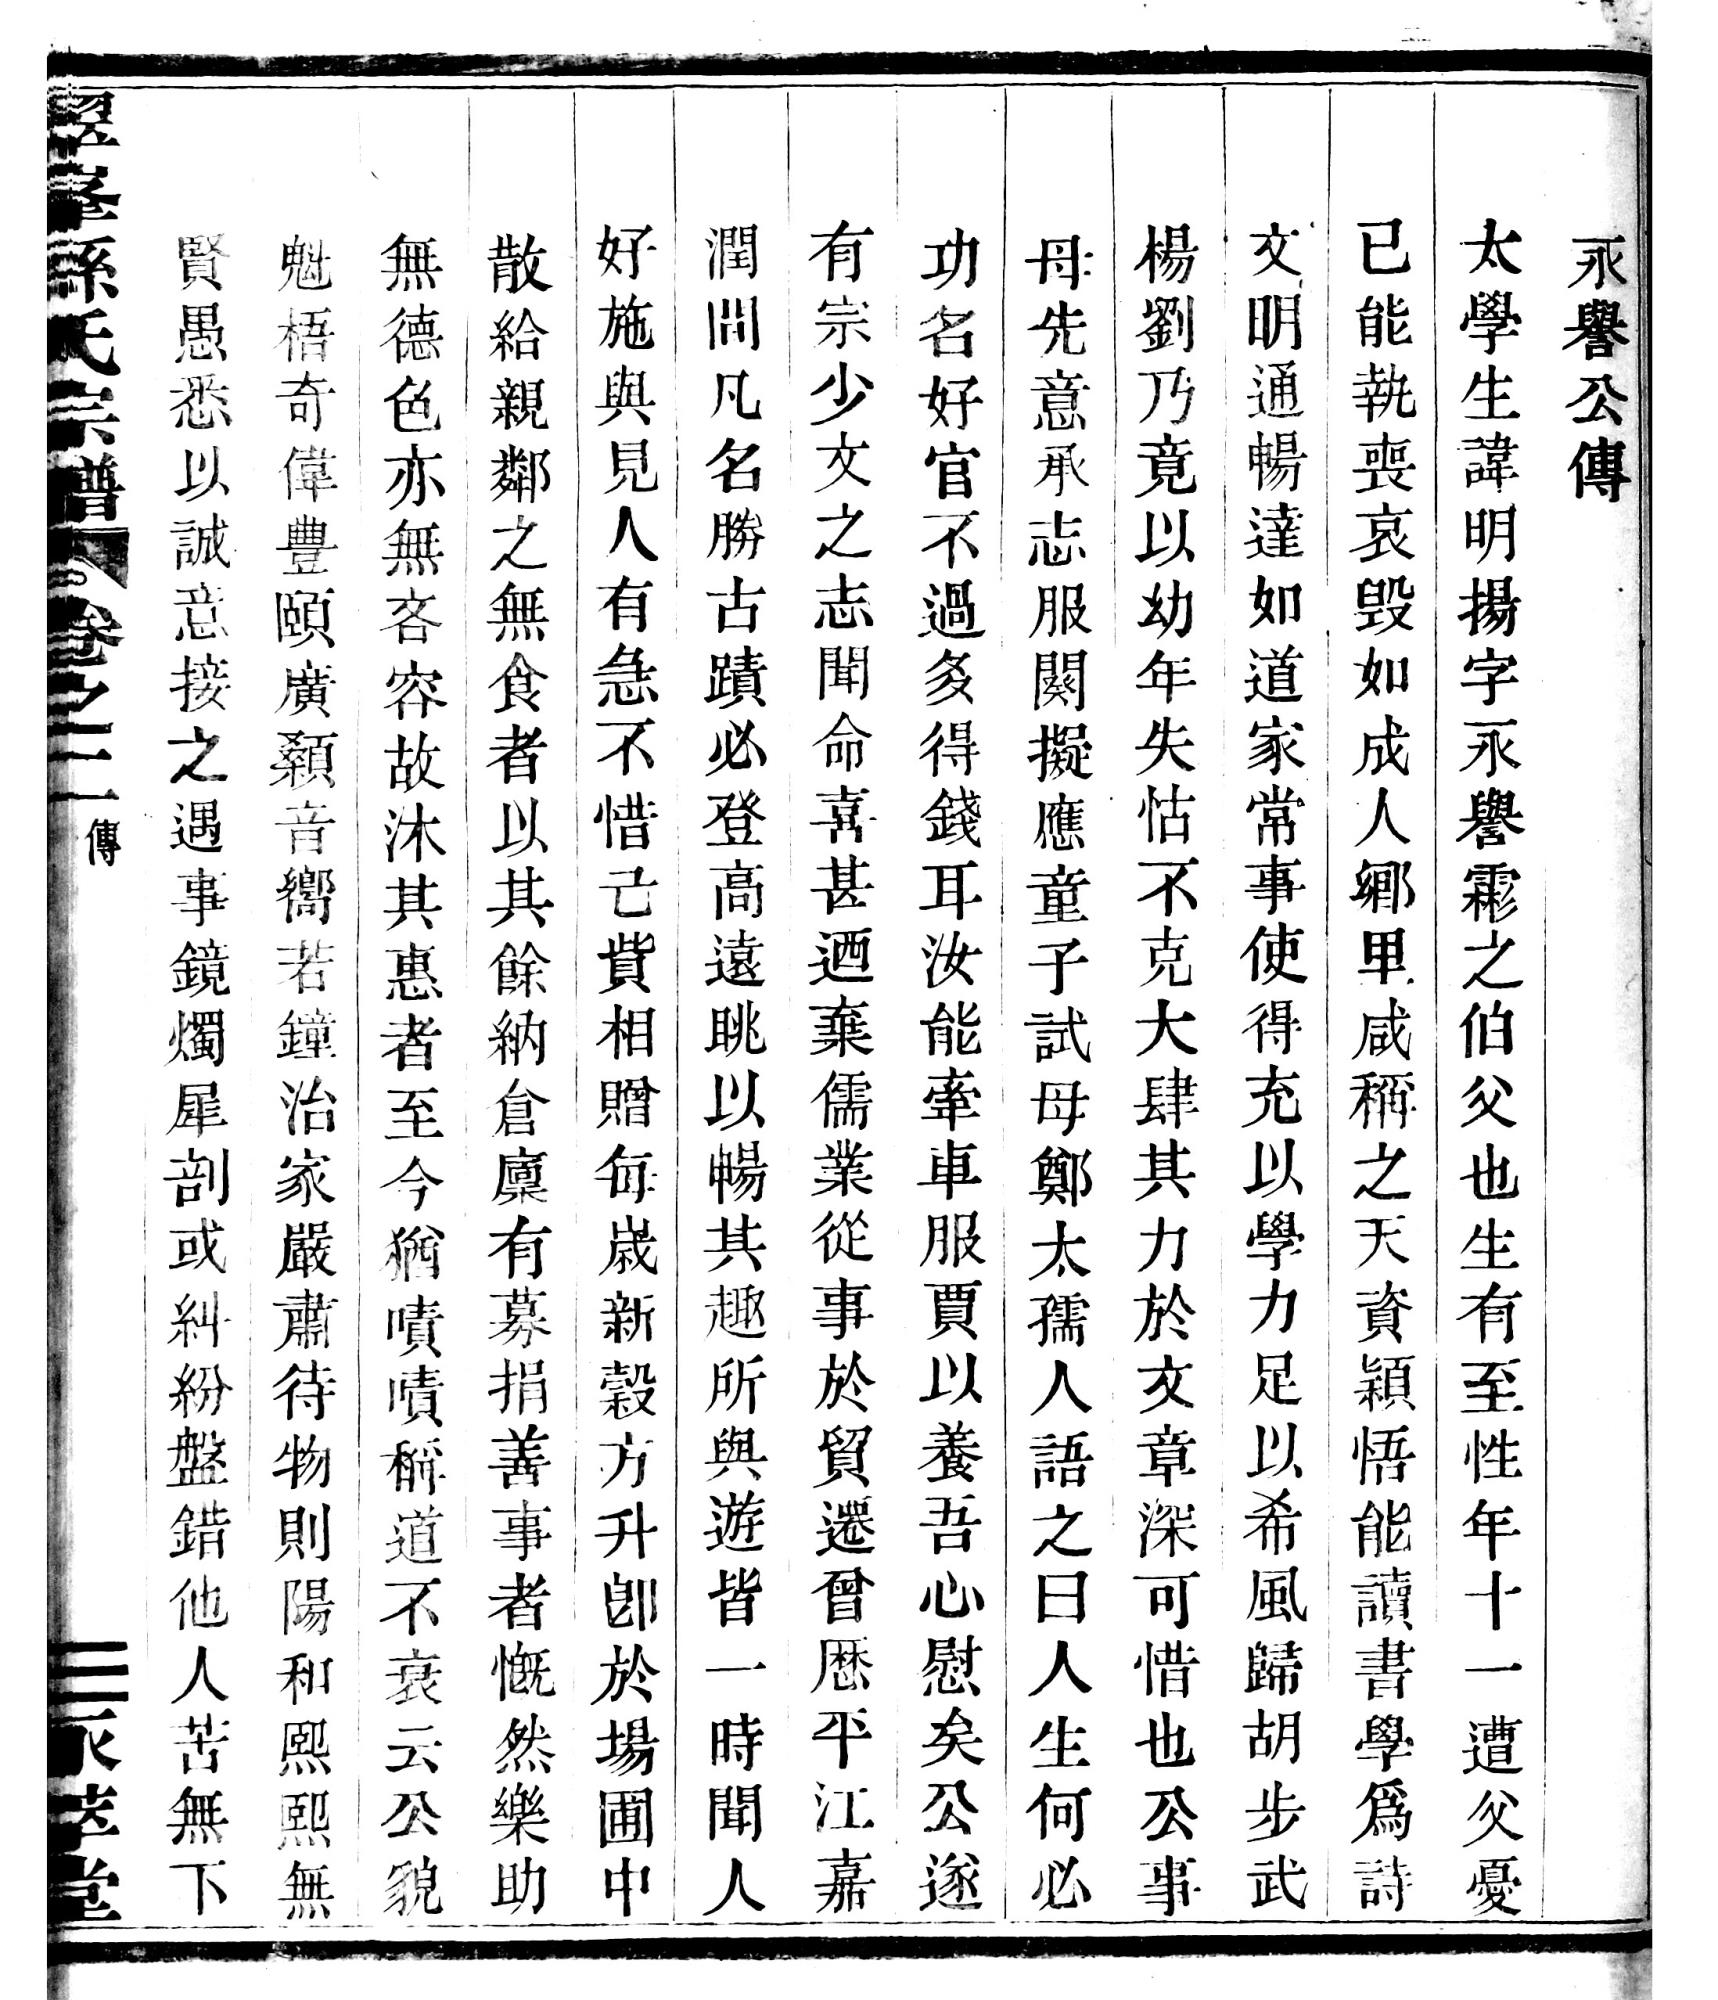 永譽公傳
太學生諱明揚字永譽霦之伯父也生有至性年十一遭父憂
已能執喪哀毀如成人鄉里咸稱之天資穎悟能讀書學爲詩
文明通暢達如道家常事使得充以學力足以希風歸胡步武
楊劉乃竟以幼年失怙不克大肆其力於文章深可惜也公事
母先意承志服闋擬應童子試母鄭太孺人語之曰人生何必
功名好官不過多得錢耳汝能牽車服賈以養吾心慰矣公遂
有宗少文之志聞命喜甚迺棄儒業從事於貿遷曾歷平江嘉
潤間凡名勝古蹟必登高遠眺以暢其趣所與遊皆一時聞人
好施與見人有急不惜己貲相贈每歲新穀方升卽於場圃中
散給親鄰之無食者以其餘納倉廩有募捐善事者慨然樂助
無德色亦無吝容故沐其惠者至今猶嘖嘖稱道不衰云公貌
魁梧奇偉豐頤廣顙音嚮若鐘治家嚴肅待物則陽和熙熙無
賢愚悉以誠意接之遇事鏡燭犀剖或糾紛盤錯他人苦無下
峯孫氏宗譜 卷之二 傳 三 永萃堂